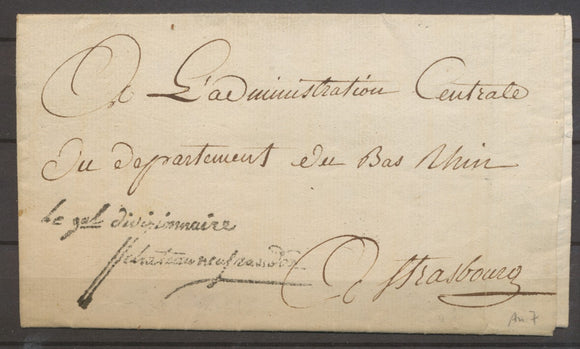 A L'administration Centrale
Du departement du Bas Rhin
le gal divisionnaire
Chateauneufrandon
A strasbourg
An 7